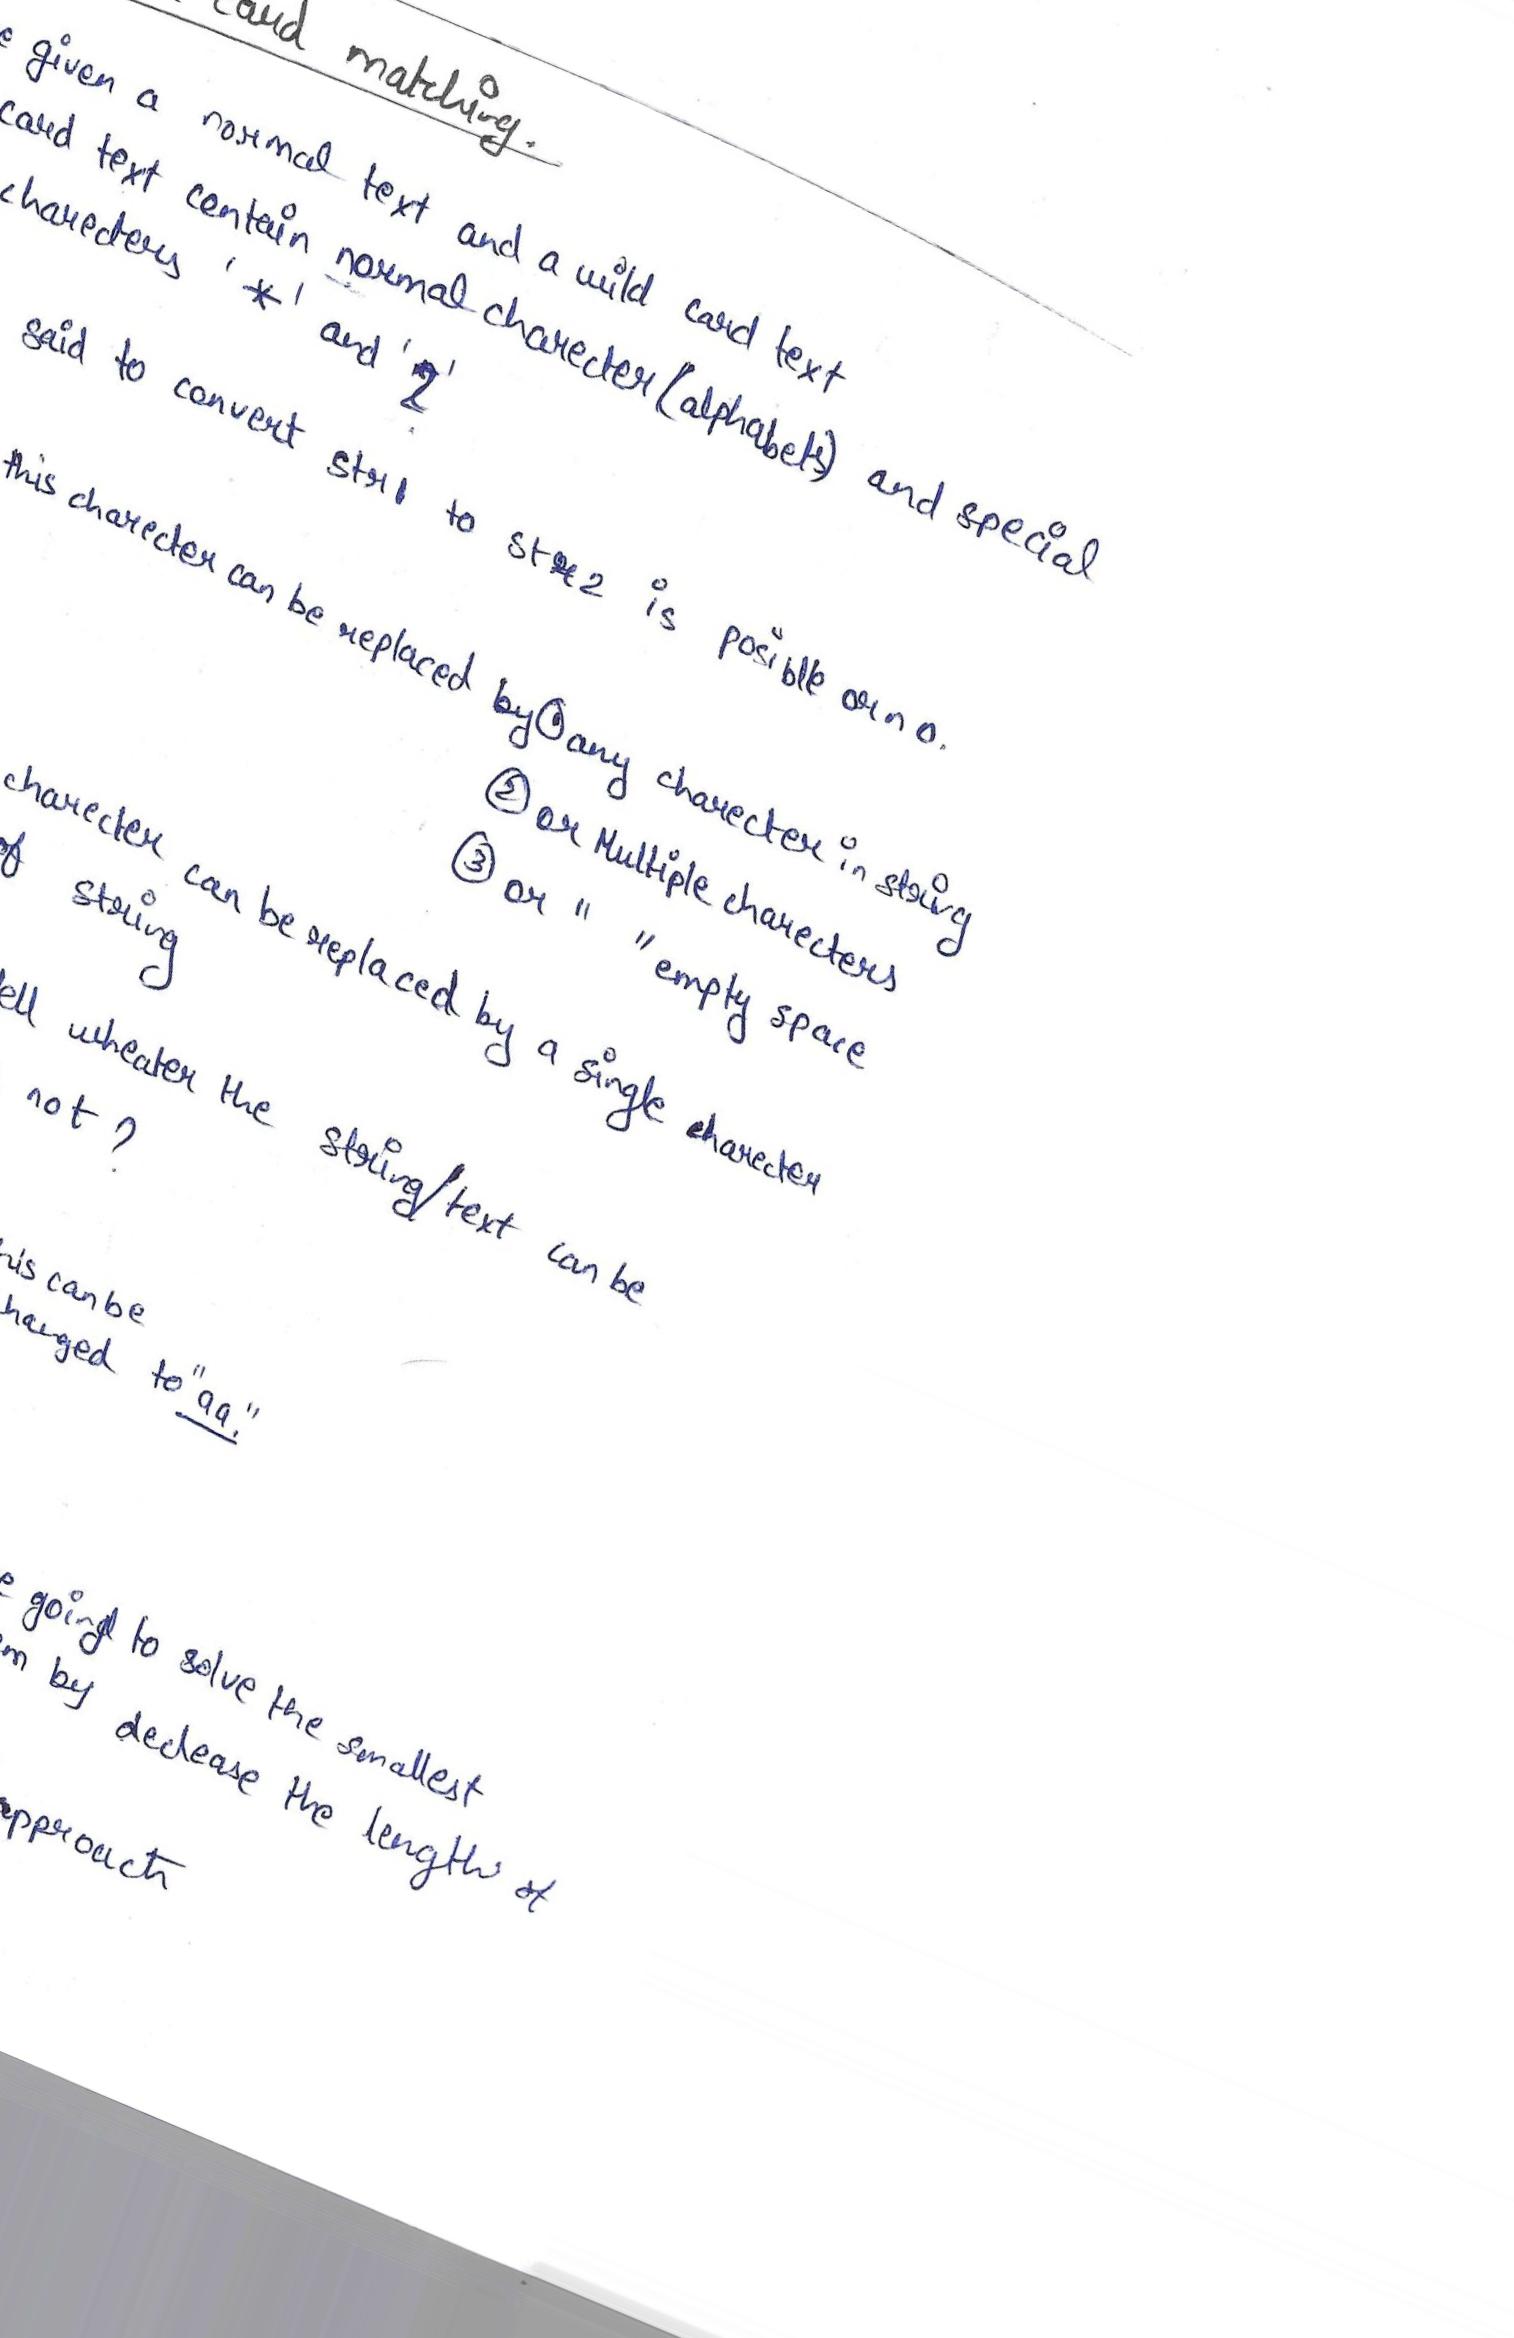 card matching.
given a normal text and a wild card text
card text contain normal charecter (alphabets) and special
charecters '*' and '?'
said to convert str1 to str2 is posible or no.
this charecter can be replaced by ① any charecter in string
② or Multiple charecters
③ or " " empty space
charecter can be replaced by a single charecter
of string
tell wheater the string/text can be
not ?
this can be
changed to "aa."
going to solve the smallest
by declease the length of
approach